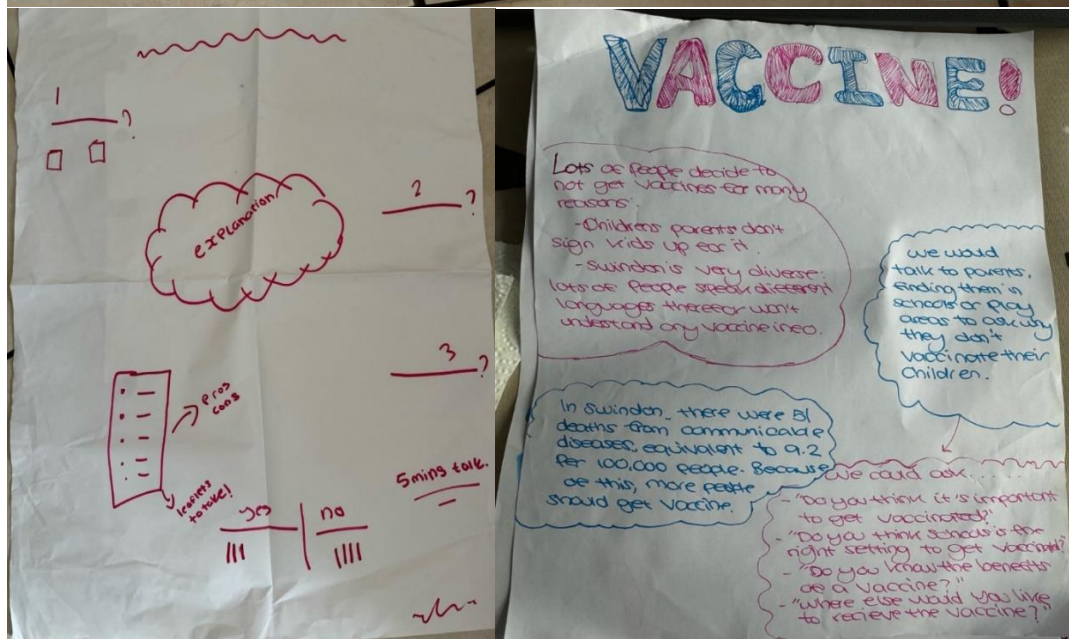 1
?
explanation
2
?
3
?
pros
cons
leaflets
to take!
5ming talk.
yes no
VACCINE!
Lots of People decide to
not get vaccines for many
reasons:
-Childrens parents don't
sign kids up for it.
-Swindon is very diverse:
lots of people speak different
languages therefor won't
understand any vaccine info.
we would
talk to parents,
finding them in
schools or play
areas to ask why
they don't
vaccinate their
children.
In Swindon, there were 51
deaths from communicable
diseases, equivalent to 9.2
per 100,000 people. Because
of this, more people
should get vaccine.
we could ask......
- "Do you think it's important
to get vaccinated?"
- "Do you think schools is the
right setting to get vaccinated?"
- "Do you know the benefits
of a vaccine?"
- "where else would you like
to recieve the vaccine?"